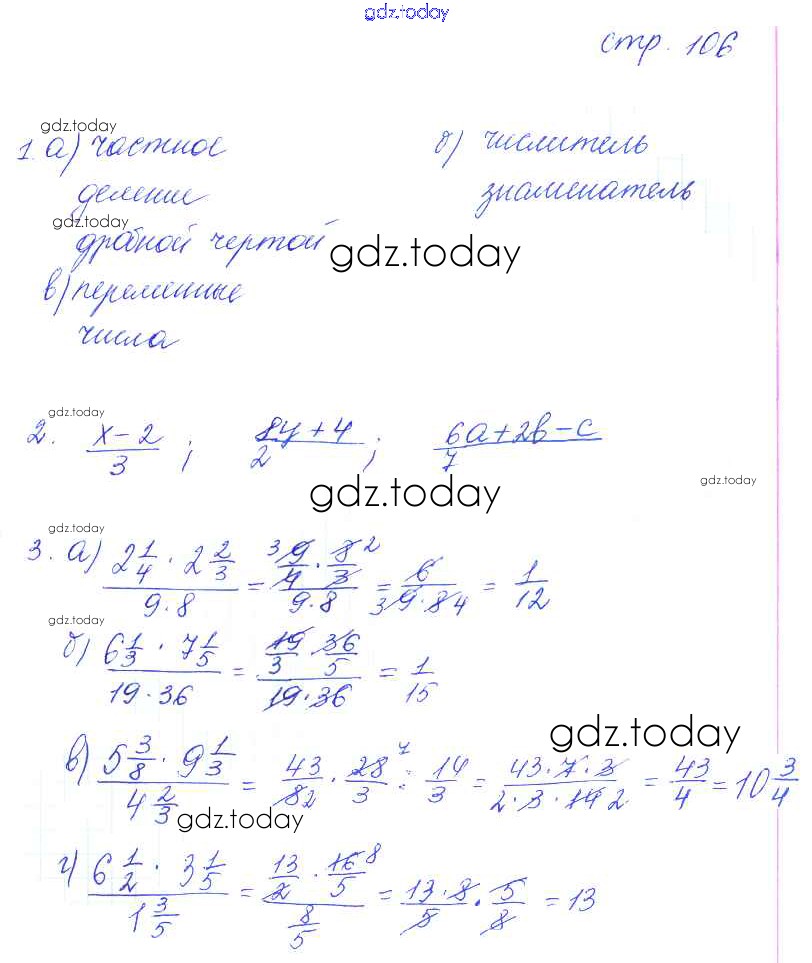 gdz.today
стр. 106
gdz.today
1. а) частное б) числитель
деление знаменатель
gdz.today
дробной чертой
gdz.today
в) переменные
числа
gdz.today
2. x-2/3 ; 8y+4/2 ; 6a+2b-c/7
gdz.today
gdz.today
gdz.today
3. а) 2 1/4 · 2 2/3 / 9·8 = 3 9/4 · 8/3 2 / 9·8 = 6 / 3 9·8 4 = 1/12
gdz.today
б) 6 1/3 · 7 1/5 / 19·36 = 19/3 · 36/5 / 19·36 = 1/15
gdz.today
в) 5 3/8 · 9 1/3 / 4 2/3 = 43/8 2 · 28/3 7 : 14/3 = 43·7·3 / 2·3·14 2 = 43/4 = 10 3/4
gdz.today
г) 6 1/2 · 3 1/5 / 1 3/5 = 13/2 · 16/5 8 / 8/5 = 13·8/5 · 5/8 = 13